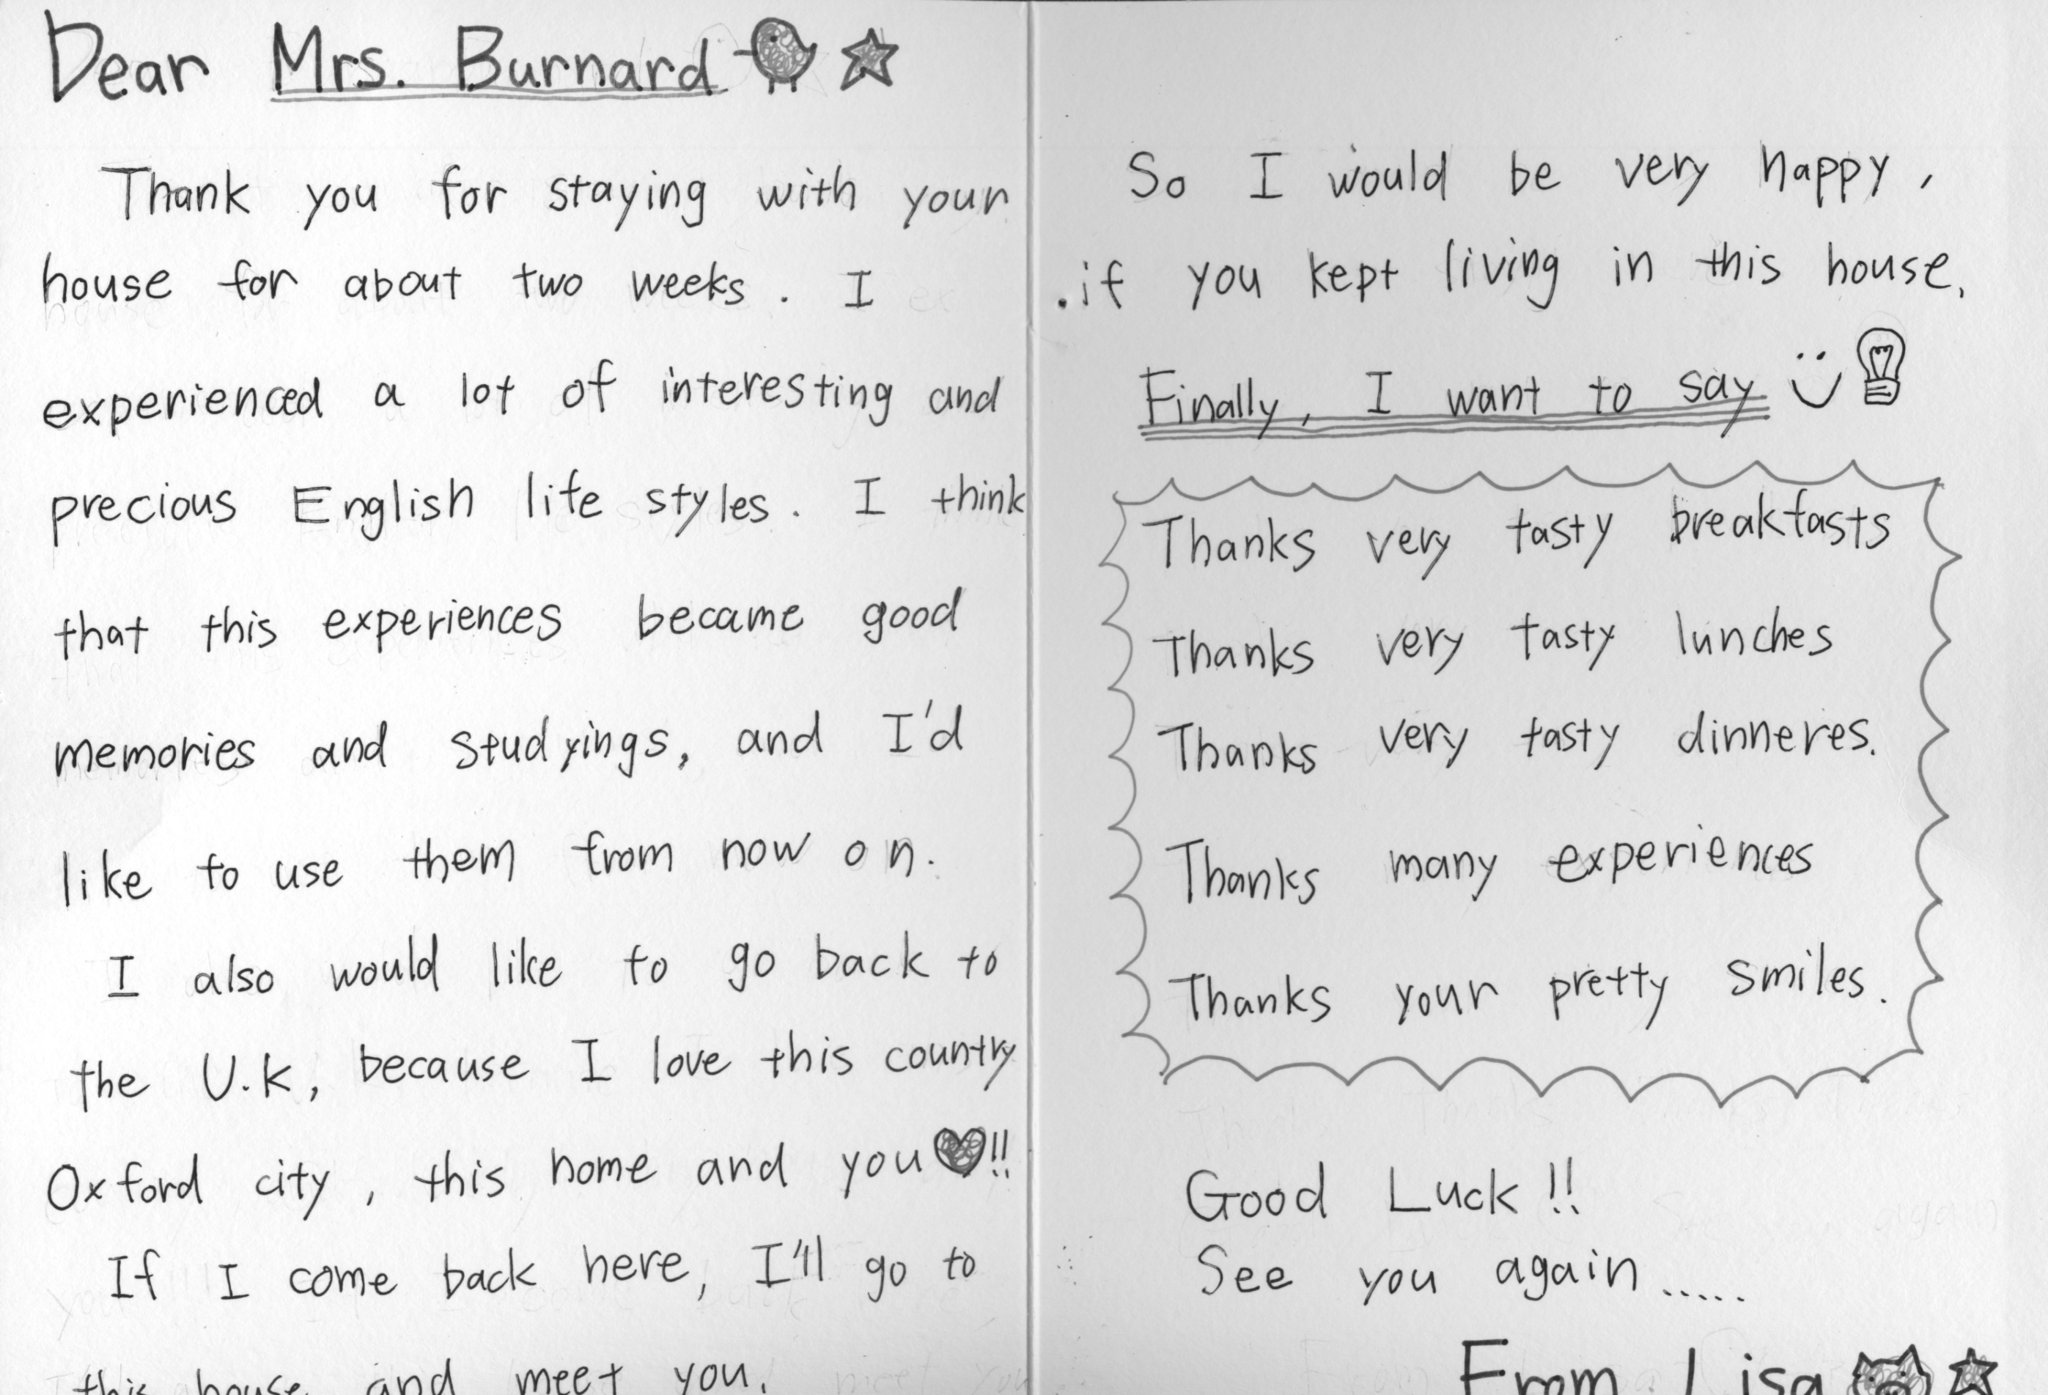 Dear Mrs. Burnard
Thank you for staying with your
house for about two weeks. I
experienced a lot of interesting and
precious English life styles. I think
that this experiences became good
memories and studyings, and I'd
like to use them from now on.
I also would like to go back to
the U.K, because I love this country
Oxford city, this home and you!!
If I come back here, I'll go to
this house and meet you.
So I would be very happy,
if you kept living in this house.
Finally, I want to say
Thanks very tasty breakfasts
Thanks very tasty lunches
Thanks very tasty dinneres.
Thanks many experiences
Thanks your pretty smiles.
Good Luck!!
See you again.....
From Lisa